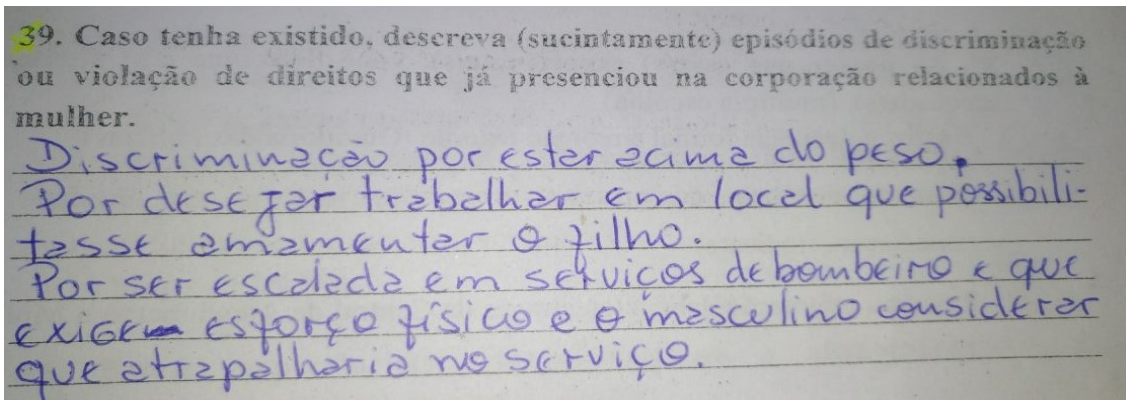 39. Caso tenha existido, descreva (sucintamente) episódios de discriminação
ou violação de direitos que já presenciou na corporação relacionados à
mulher.
Discriminação por estar acima do peso.
Por desejar trabalhar em local que possibili-
tasse amamentar o filho.
Por ser escalada em serviços de bombeiro e que
exigem esforço físico e o masculino considerar
que atrapalharia no serviço.